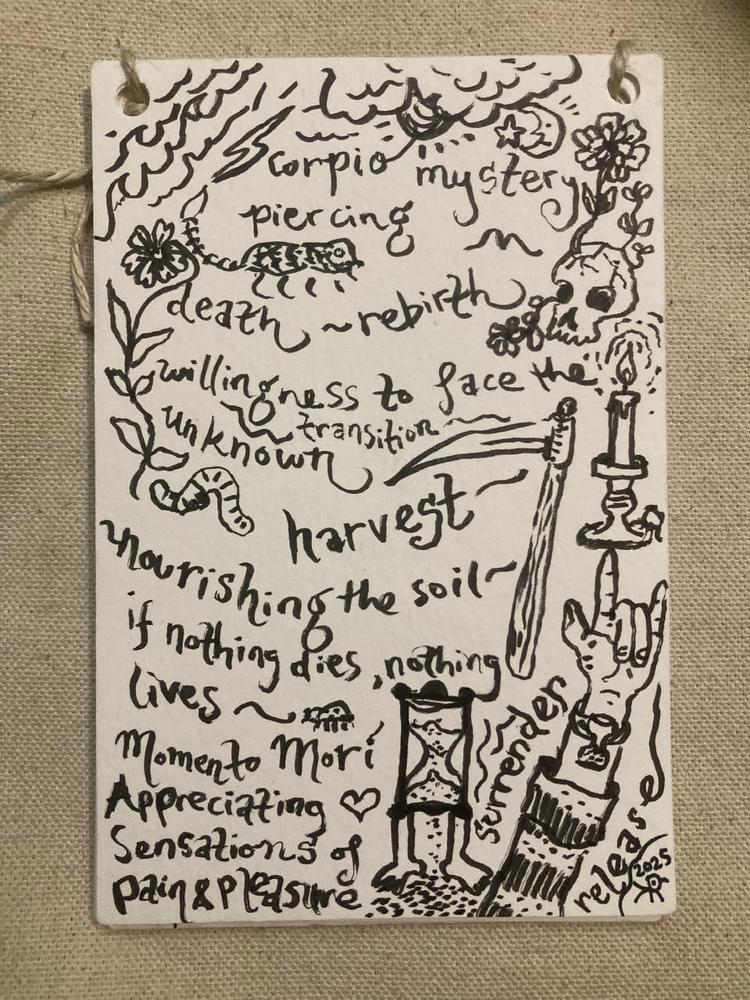 Scorpio mystery
piercing
death ~ rebirth
willingness to face the
unknown ~ transition ~
harvest ~
nourishing the soil ~
if nothing dies, nothing
lives ~
Momento Mori
Appreciating ♡
Sensations of
pain & pleasure
surrender
release
2025